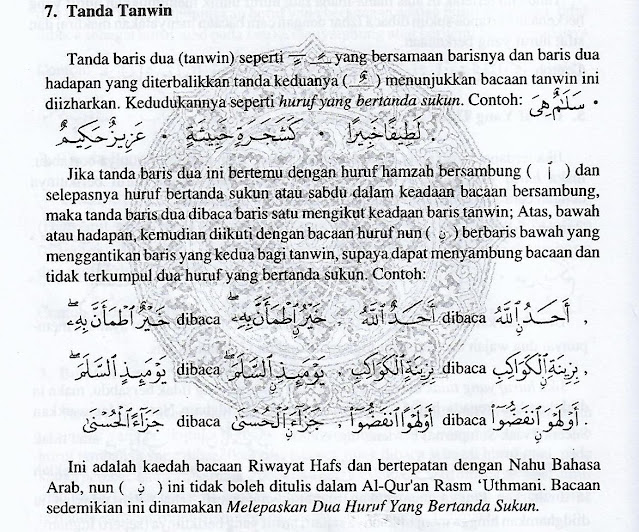 7. Tanda Tanwin
Tanda baris dua (tanwin) seperti ـً ـٍ yang bersamaan barisnya dan baris dua
hadapan yang diterbalikkan tanda keduanya ( ـٌ ) menunjukkan bacaan tanwin ini
diizharkan. Kedudukannya seperti huruf yang bertanda sukun. Contoh: سَلَٰمٌ هِيَ •
لَطِيفًا خَبِيرًا • كَشَجَرَةٍ خَبِيثَةٍ • عَزِيزٌ حَكِيمٌ
Jika tanda baris dua ini bertemu dengan huruf hamzah bersambung ( ٱ ) dan
selepasnya huruf bertanda sukun atau sabdu dalam keadaan bacaan bersambung,
maka tanda baris dua dibaca baris satu mengikut keadaan baris tanwin; Atas, bawah
atau hadapan, kemudian diikuti dengan bacaan huruf nun ( نِ ) berbaris bawah yang
menggantikan baris yang kedua bagi tanwin, supaya dapat menyambung bacaan dan
tidak terkumpul dua huruf yang bertanda sukun. Contoh:
خَيْرٌ ٱطْمَأَنَّ بِهِۦ dibaca خَيْرُنِ ٱطْمَأَنَّ بِهِۦ , أَحَدٌ ٱللَّهُ dibaca أَحَدُنِ ٱللَّهُ ,
يَوْمَئِذٍ ٱلسَّلَمَ dibaca يَوْمَئِذِنِ ٱلسَّلَمَ , بِزِينَةٍ ٱلْكَوَاكِبِ dibaca بِزِينَةِنِ ٱلْكَوَاكِبِ ,
جَزَآءً ٱلْحُسْنَىٰ dibaca جَزَآءَنِ ٱلْحُسْنَىٰ , أَوْ لَهْوًا ٱنفَضُّوٓا۟ dibaca أَوْ لَهْوَنِ ٱنفَضُّوٓا۟ .
Ini adalah kaedah bacaan Riwayat Hafs dan bertepatan dengan Nahu Bahasa
Arab, nun ( نِ ) ini tidak boleh ditulis dalam Al-Qur'an Rasm ‘Uthmani. Bacaan
sedemikian ini dinamakan Melepaskan Dua Huruf Yang Bertanda Sukun.